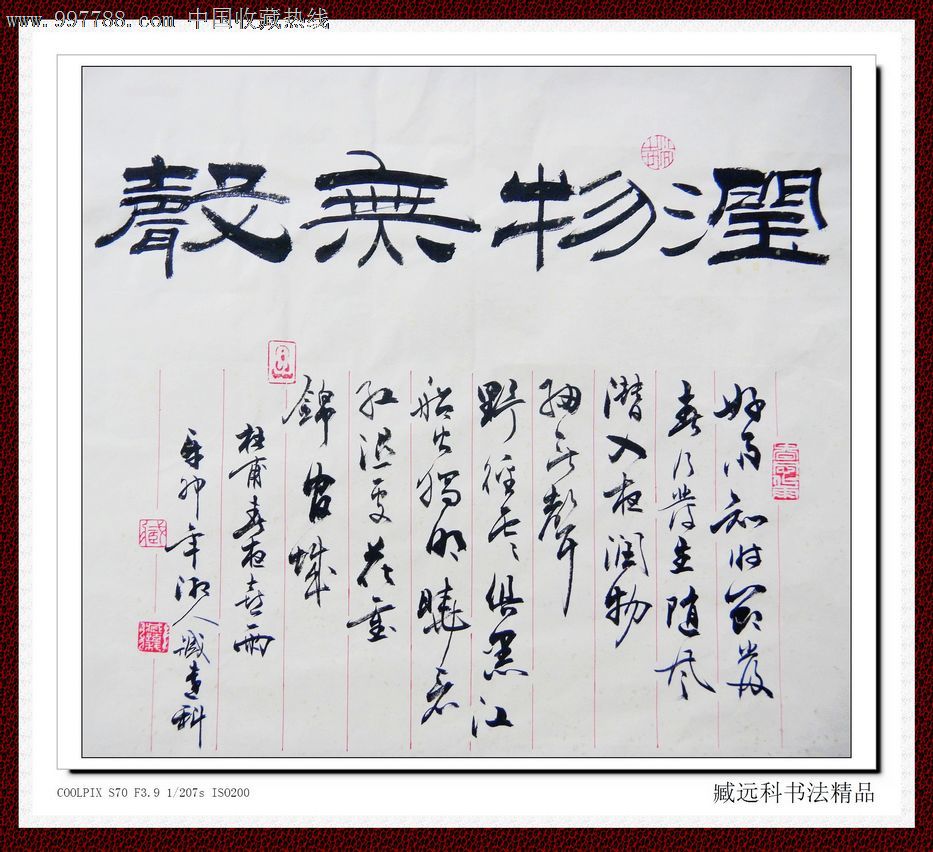 www.997788.com 中国收藏热线
潤物無聲
好雨知时節當
春乃發生随风
潜入夜润物
细无聲
野径云俱黑江
船火獨明曉看
红湿處花重
錦官城
杜甫春夜喜雨
辛卯年湖人臧遠科
COOLPIX S70 F3.9 1/207s ISO200
臧远科书法精品